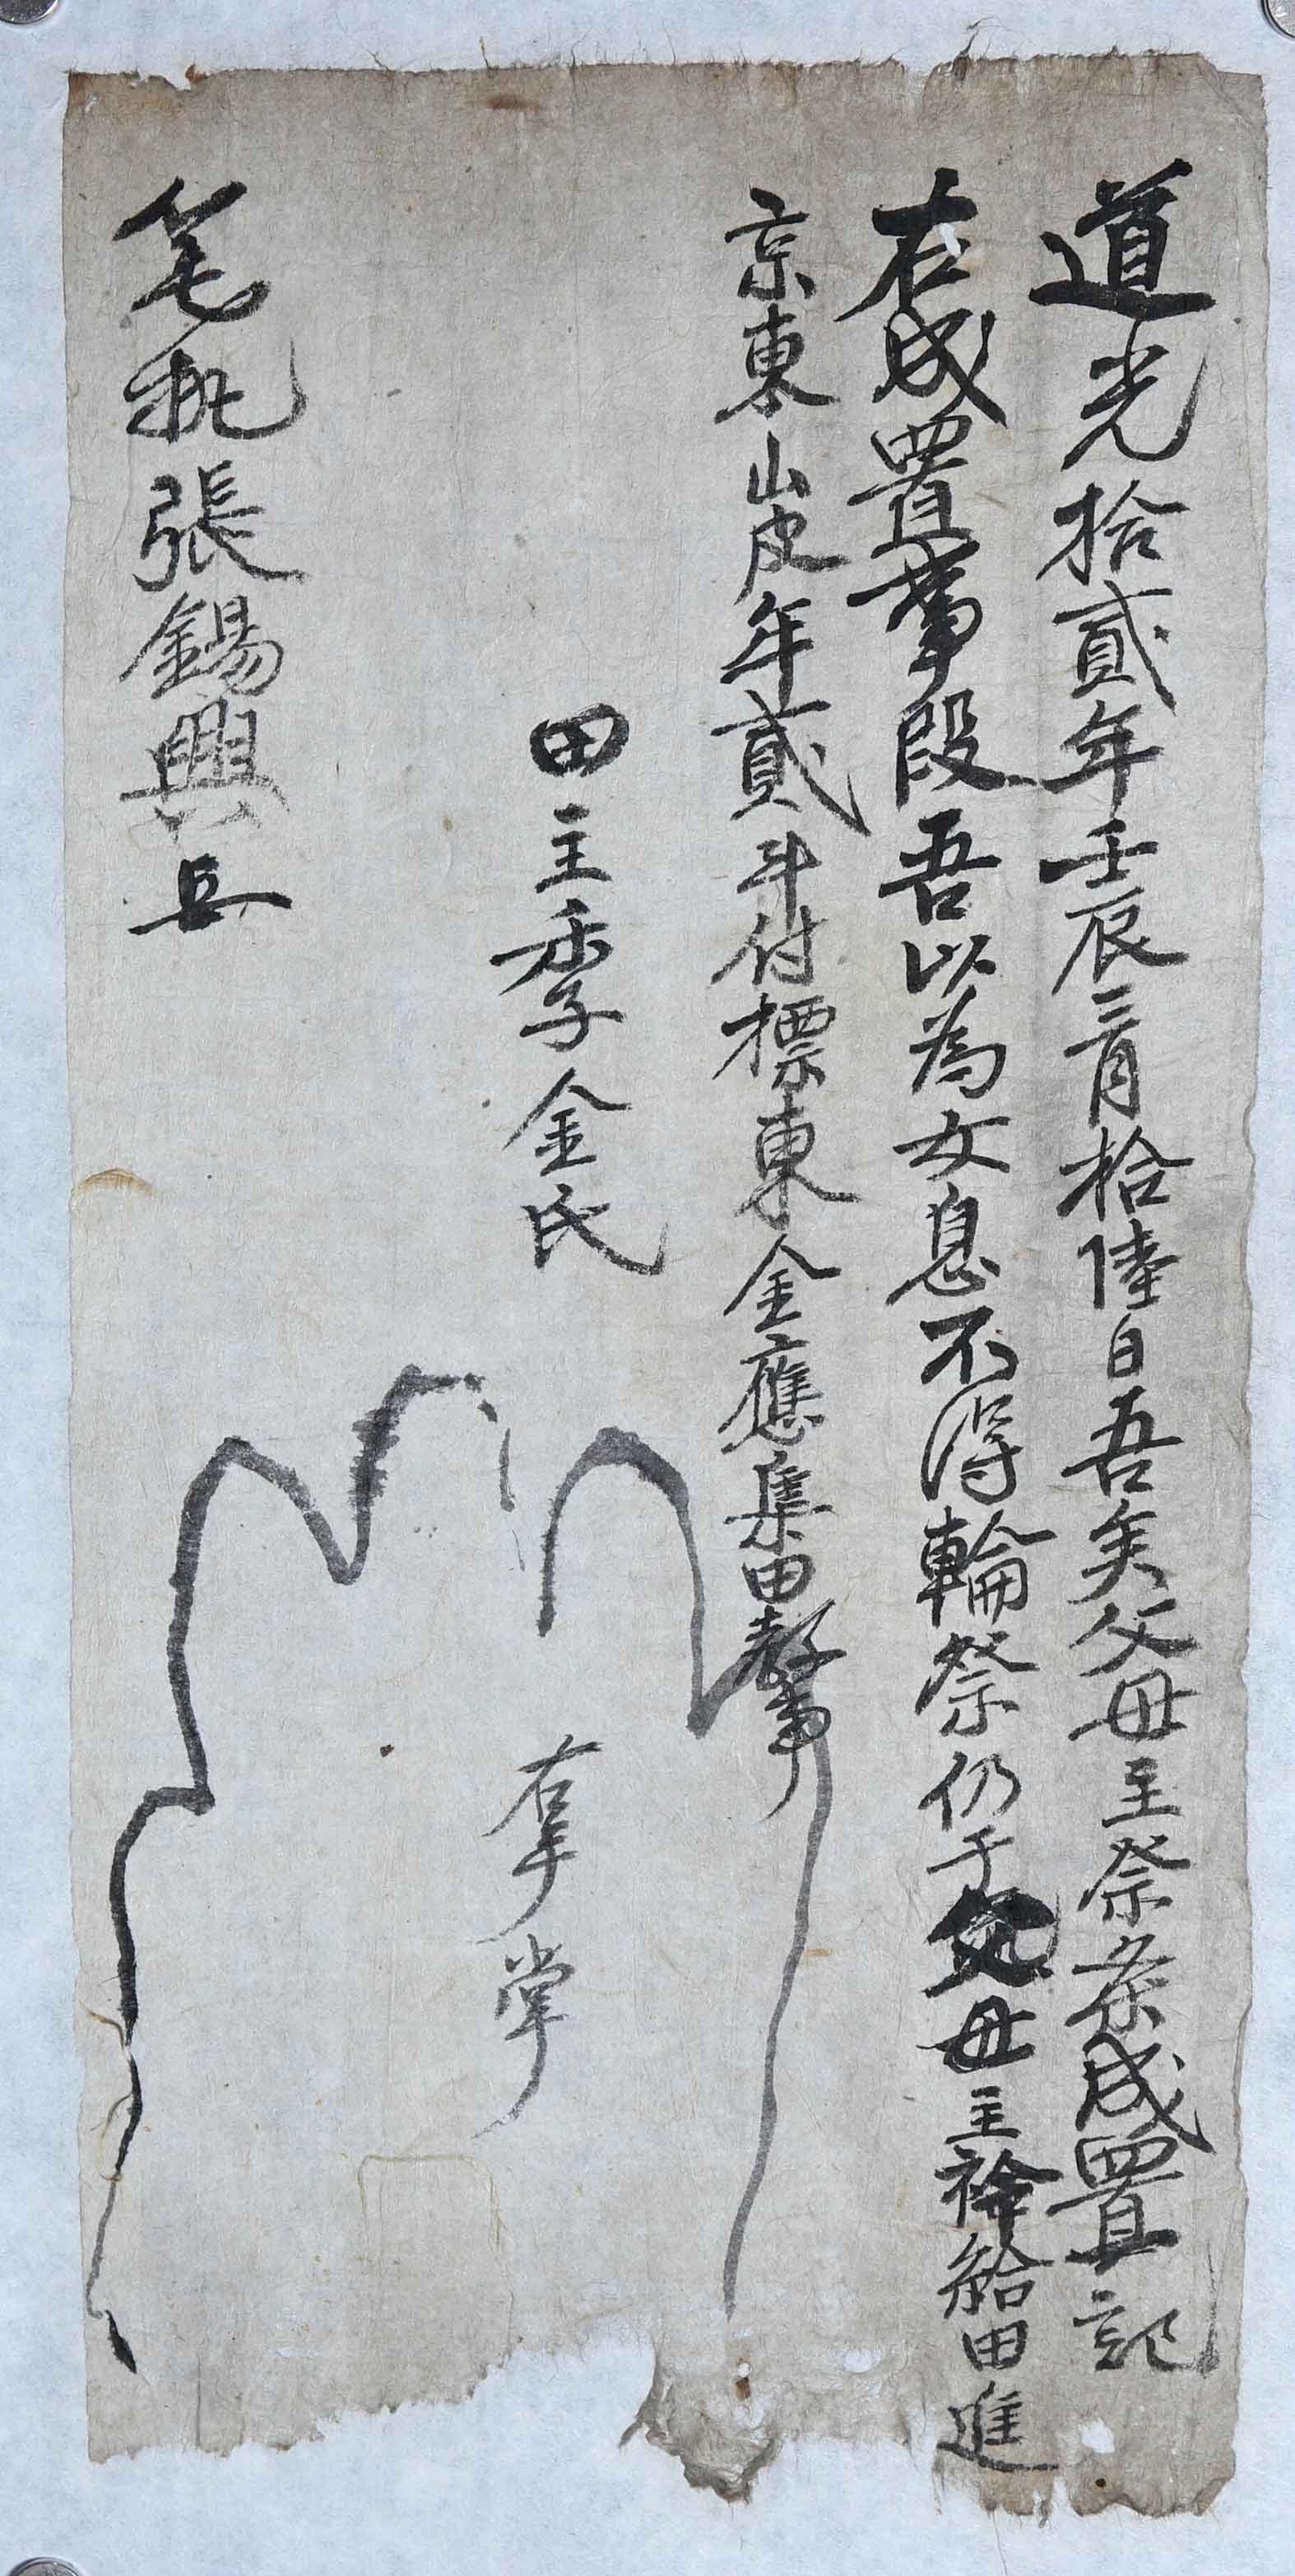 道光拾貳年壬辰三月拾陸日吾矣父母主祭条成置記
右成置事段吾以為女息不得輪祭仍于父母主衿給田進
京東山皮年貳斗付標東金應集田教事
田主季金氏
右手掌
笔执張錫興